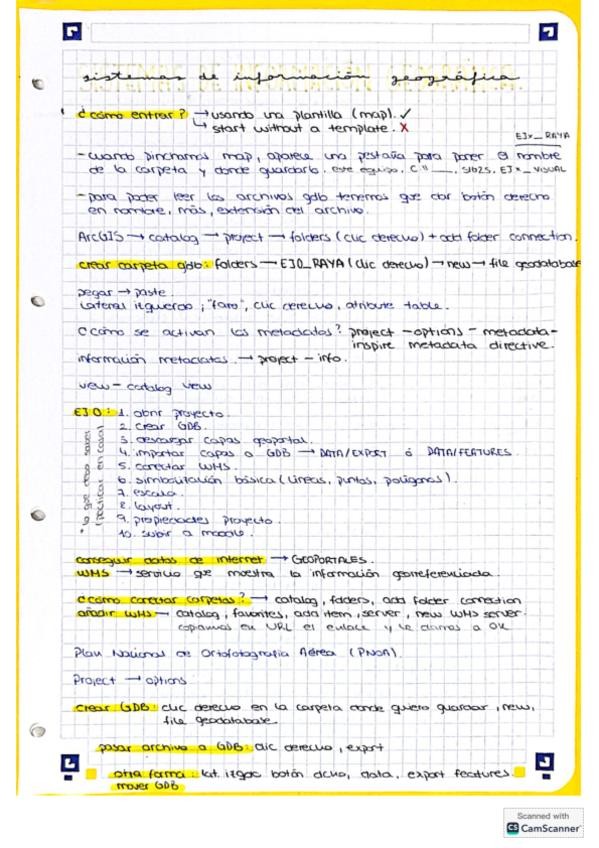 sistemas de información geográfica.
¿cómo entrar? → usando una plantilla (map). ✓
↳ start without a template. X
EJx_RAYA
- cuando pinchamos map, aparece una pestaña para poner el nombre
de la carpeta y donde guardarlo. este equipo, C:\\ ___, SIG25, EJx_VISUAL
- para poder leer los archivos gdb tenemos que dar botón derecho
en nombre, más, extensión del archivo.
ArcGIS → catalog → project → folders (clic derecho) + add folder connection.
crear carpeta gdb: folders → EJ0_RAYA (clic derecho) → new → file geodatabase
pegar → paste.
Lateral izquierdo, "faro", clic derecho, atribute table.
¿Cómo se activan los metadatos? project - options - metadata -
inspire metadata directive.
información metadatos → project - info.
vew - catalog vew
EJ0: 1. abrir proyecto.
2. crear GDB.
3. descargar capas geoportal.
4. importar capas a GDB → DATA/EXPORT ó DATA/FEATURES.
5. conectar WMS.
6. simbolización básica (líneas, puntos, polígonos).
7. escala.
8. layout.
9. propiedades proyecto.
10. subir a moodle.
* lo que debo saber
(practicar en casa)
conseguir datos de internet → GEOPORTALES.
WMS → servicio que muestra la información georreferenciada.
¿cómo conectar carpetas? → catalog, folders, add folder connection
añadir WMS → catalog, favorites, add item, server, new WMS server.
copiamos en URL el enlace y le damos a OK
Plan Nacional de Ortofotografía Aérea (PNOA).
Project → options
crear GDB: clic derecho en la carpeta donde quiero guardar, new,
file geodatabase.
pasar archivo a GDB: clic derecho, export
otra forma: lat. izqdo botón dcho, data, export features.
mover GDB
Scanned with
CS CamScanner